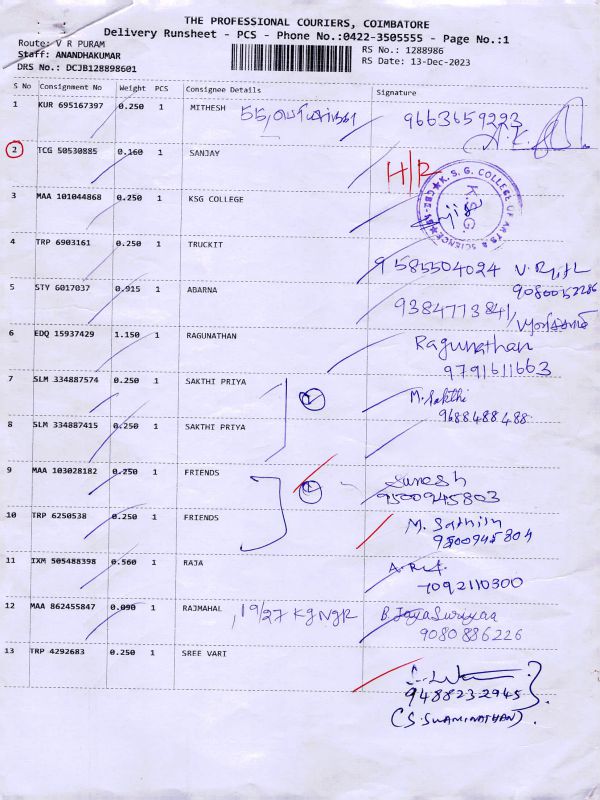 THE PROFESSIONAL COURIERS, COIMBATORE
Delivery Runsheet - PCS - Phone No.:0422-3505555 - Page No.:1
Route: V R PURAM
RS No.: 1288986
Staff: ANANDHAKUMAR
RS Date: 13-Dec-2023
DRS No.: DCJB128898601
S No Consignment No Weight PCS Consignee Details Signature
1 KUR 695167397 0.250 1 MITHESH 55, 9663659223
2 TCG 50530885 0.160 1 SANJAY H/R
3 MAA 101044868 0.250 1 KSG COLLEGE K.S.G. COLLEGE OF ARTS & SCIENCE K.S.G.
4 TRP 6903161 0.250 1 TRUCKIT 9585504024
9080052286
5 STY 6017037 0.915 1 ABARNA 9384773841
6 EDQ 15937429 1.150 1 RAGUNATHAN Ragunathan
9791611663
7 SLM 334887574 0.250 1 SAKTHI PRIYA M. Sakthi
9688488488
8 SLM 334887415 0.250 1 SAKTHI PRIYA
9 MAA 103028182 0.250 1 FRIENDS Suresh
9500945803
10 TRP 6250538 0.250 1 FRIENDS M. Sathish
9500945804
11 IXM 505488398 0.560 1 RAJA
7092110300
12 MAA 862455847 0.090 1 RAJMAHAL , 19/27 KG NGR B. JayaSuriyaa
9080886226
13 TRP 4292683 0.250 1 SREE VARI
9488232945
(S. SWAMINATHAN).